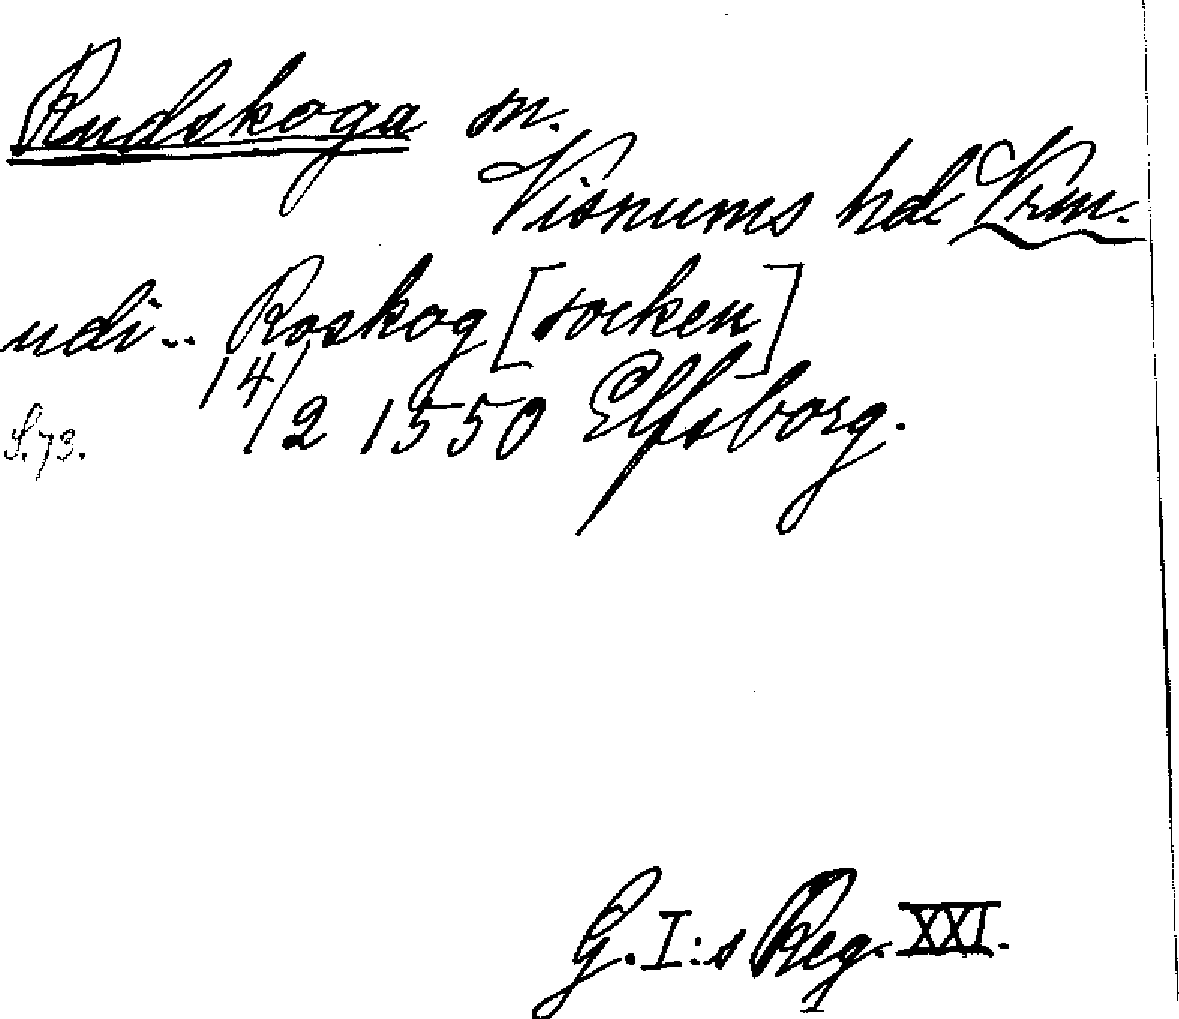 Rudskoga sn.
Visnums hd Vrm.
udi .. Roskog [socken]
14/2 1550 Elfsborg.
S. 73.
G. I:s Reg. XXI.